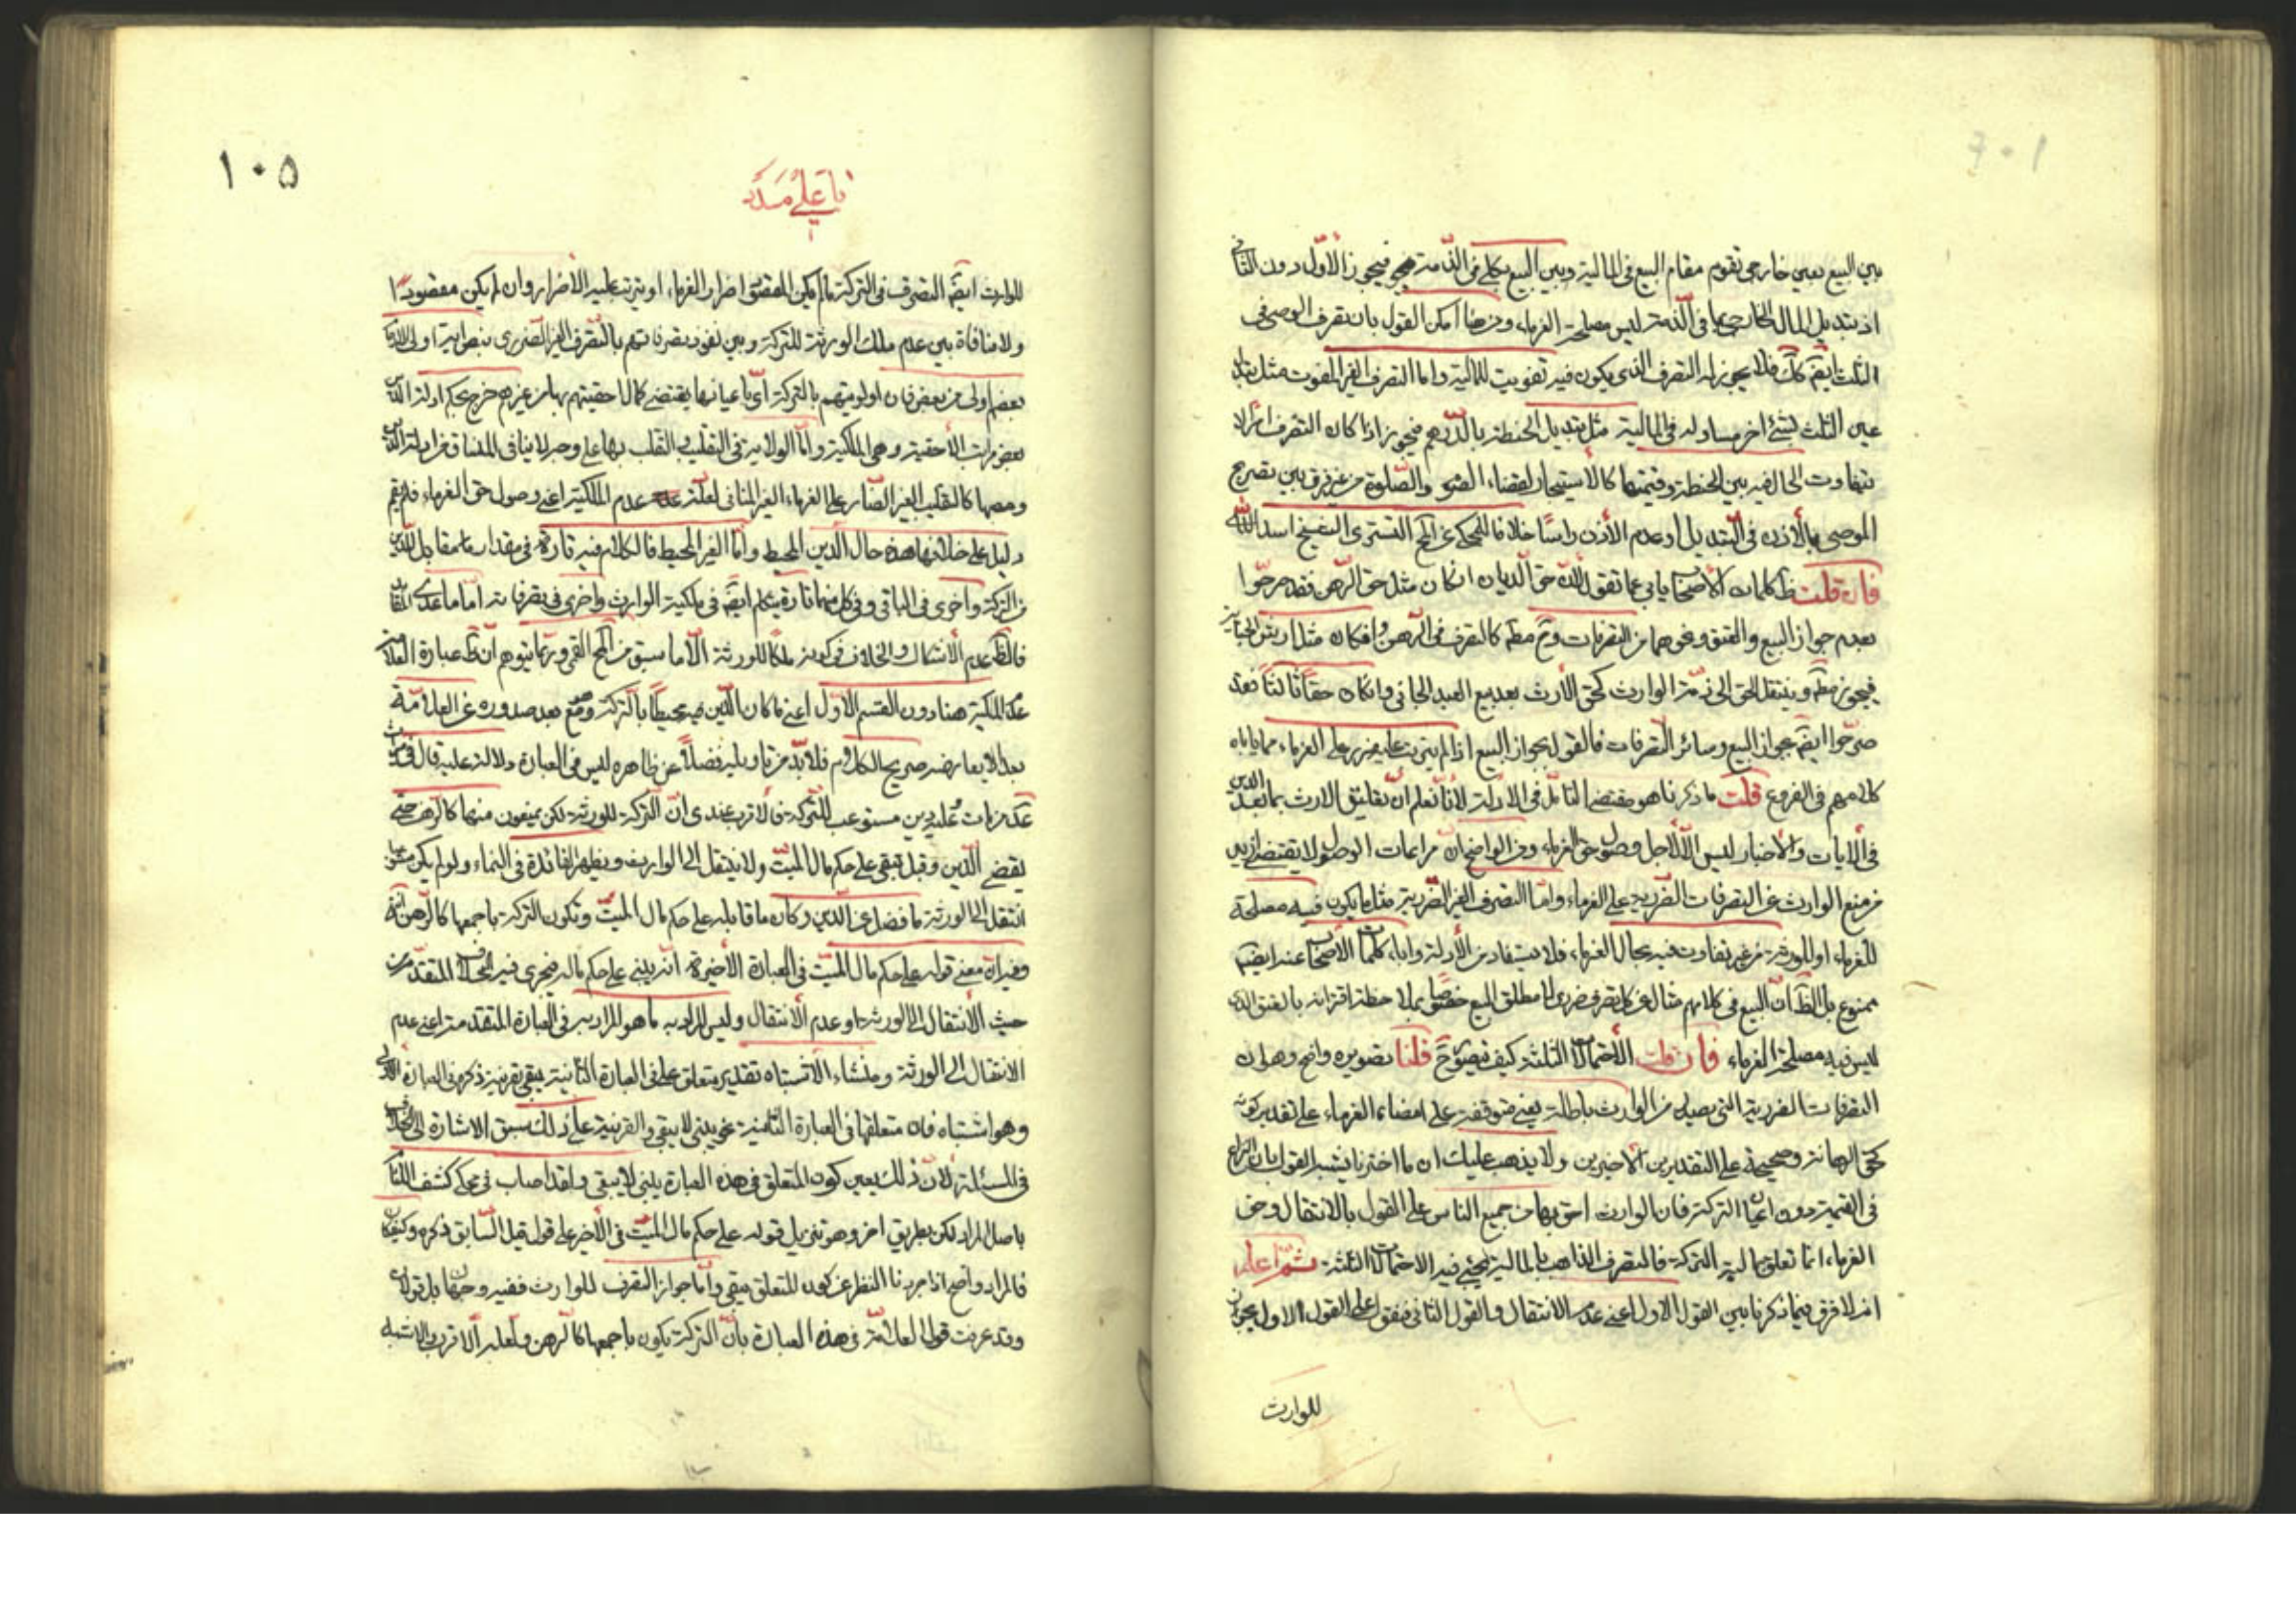 بين البيع بعين خارجى تقوم مقام البيع فى المالية وبين البيع بكلى فى الذمة فيجوز الأول دون الثانى
اذ تبديل المال الخارجى بما فى الذمة ليس مصلحة الغرماء ومن هنا امكن القول بان تصرف الوصى فى
الثلث ايضم كك فلا يجوز له التصرف الذى يكون فيه تفويت للمالية واما التصرف الغير المفوت مثل تبديل
عين الثلث بشئ اخر مساو له فى المالية مثل تبديل الحنطة بالدرهم فيجوز اذا كان التصرف امرا لا
يتفاوت الحال فيه بين الحنطة وقيمتها كالاستيجار لقضاء الصوم والصلوة من غير فرق بين تصريح
الموصى بالأذن فى التبديل او عدم الأذن راسًا خلافا للمحكى عن التسترى الشيخ اسد الله
فان قلت ظ كلمات الأصحاب يابى عما تقول لان حق الديان ان كان مثل حق الرهن فقد صرحوا
بعدم جواز البيع والعتق ونحوهما من التصرفات وان كان مثل ارش الجناية
فيجوز مطم وينتقل الحق الى ذمة الوارث كحق الأرث بعد بيع العبد الجانى وان كان حقًا ثالثًا فقد
صرحوا ايضم بجواز البيع وسائر التصرفات فالقول بجواز البيع اذا لم يترتب عليه ضرر على الغرماء مما ياباه
كلامهم فى الفروع قلت ما ذكرنا هو مقتضى التامل فى الادلة لأنا نعلم ان تعليق الارث بما بعد الدين
فى الآيات والأخبار ليس الا لأجل وصول حق الغرماء ومن الواضح ان مراعات الوصول لا يقتضى ازيد
من منع الوارث عن التصرفات الضررية على الغرماء واما التصرف الغير الضررية مثل ما يكون فيه مصلحة
للغرماء او للورثة من غير تفاوت فيه بحال الغرماء فلا يستفاد من الأدلة واباء كلمات الأصحاب عنه ايضم
ممنوع بل الظ ان البيع فى كلامهم مثال عن كل تصرف ضررى لا مطلق البيع خصوصا بملاحظة اقترانه بالعتق الذى
ليس فيه مصلحة الغرماء فان قلت الأحتمالات الثلثة كيف يتصور ح قلنا تصويره واضح وهو ان
التصرفات الضررية التى يصدر من الوارث باطلة يعنى متوقفة على امضاء الغرماء على تقدير كونه
كحق الرهانة وصحيحة على التقديرين الأخيرين ولا يذهب عليك ان ما اخترنا يشبه القول بان النزاع
فى القيمة دون اعيان التركة فان الوارث احق بها من جميع الناس على القول بالانتقال وحق
الغرماء انما تعلق بمالية التركة فالتصرف الذاهب بالمالية يجئ فيه الاحتمالات الثلثة ثم اعلم
انه لا فرق فيما ذكرنا بين القول الاول اعنى عدم الانتقال والقول الثانى فعلى القول الاول يجوز
للوارث
١٠٥
يا على مدد
للوارث ايضم التصرف فى التركة ما لم يكن المقصود اضرار الغرماء او يترتب عليه الأضرار وان لم يكن مقصودًا
ولا منافاة بين عدم ملك الورثة للتركة وبين نفوذ تصرفاتهم بالتصرف الغير الضررى
بعضهم اولى من بعض فان اولويتهم بالتركة اى باعيانها يقتضى كمال احقيتهم بها من غيرهم خرج بحكم ادلة الدين
بعض مراتب الأحقية وهى الملكية واما الولاية فى التقليب والقلب بها على وجه لا ينافى
كالتقليب الغير الضار على الغرماء الغير المنافى لعلة عدم الملكية اعنى وصول حق الغرماء فلم يقم
دليل على خلافها هذه حال الدين المحيط واما الغير المحيط فالكلام فيه تارة فى مقدار ما يقابل الدين
من التركة واخرى فى الباقى وفى كل منهما تارة يتكلم ايضم فى ملكية الوارث واخرى فى تصرفاته اما ما عدى
فالظ عدم الأشكال والخلاف فى كونه ملكًا للورثة الا ما سبق من القمى وربما يتوهم ان ظ عبارة العلامة
عدم الملكية هنا دون القسم الأول اعنى ما كان الدين محيطًا بالتركة بعد صدوره عن العلامة
لا يعارض صريح الكلام فلا بد من تاويله فضلًا عن ظاهره ليس فى العبارة دلالة عليه قال فى
من مات وعليه دين مستوعب للتركة فالأقرب عندى ان التركة للورثة لكن يمنعون منها كالرهن حتى
يقضى الدين وقيل تبقى على حكم مال الميت ولا ينتقل الى الوارث ويظهر الفائدة فى النماء ولو لم يكن مستوعبا
انتقل الى الورثة ما فضل عن الدين وكان ما قابله على حكم مال الميت وتكون التركة باجمعها كالرهن انتهى
وفيه ان معنى قوله على حكم مال الميت فى العبارة الأخيرة انه يبنى على حكم ماله فيجرى فيه الخلاف المتقدم من
حيث الأنتقال الى الورثة او عدم الأنتقال وليس المراد به ما هو المراد به فى العبارة المتقدمة اعنى عدم
الانتقال الى الورثة ومنشاء الأشتباه تقدير متعلق على فى العبارة الثانية يبقى بقرينة ذكره فى العبارة الاولى
وهو اشتباه فان متعلقها فى العبارة الثانية هو يبنى لا يبقى والقرينة على ذلك سبق الاشارة الى الخلاف
فى المسئلة لان ذلك يعين كون المتعلق فى هذه العبارة يبنى لا يبقى ولقد اصاب فى محكى كشف اللثام
باصل المراد لكن بطريق اخر وهو تنزيل قوله على حكم مال الميت فى الأخير على قول قيل السابق ذكره وكيف كان
فالمراد واضح اذا جردنا النظر عن كون المتعلق يبقى واما جواز التصرف للوارث ففيه وجهان بل قولان
وقد عرفت قول العلامة فى هذه العبارة بان التركة يكون باجمعها كالرهن ولعله الاقرب والاشبه